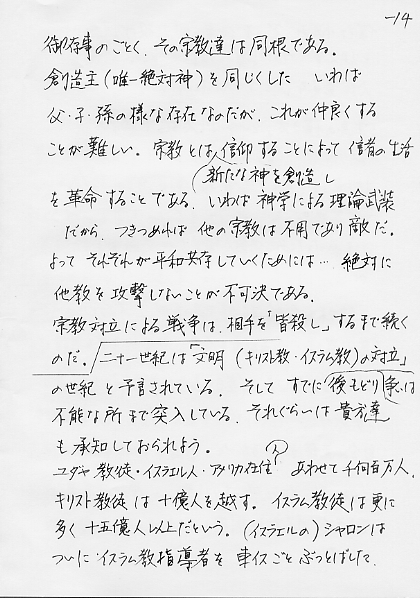 -14
御存事のごとく、その宗教達は同根である。
創造主(唯一絶対神)を同じくした いわば
父・子・孫の様な存在なのだが、これが仲良くする
ことが難しい。宗教とは、信仰することによって信者の生活
新たな神を創造し
を革命することである。いわば神学による理論武装
だから、つきつめれば他の宗教は不用であり敵だ。
よって それぞれが平和共存していくためには… 絶対に
他教を攻撃しないことが不可決である。
宗教対立による戦争は、相手を「皆殺し」するまで続く
のだ。二十一世紀は「文明(キリスト教・イスラム教)の対立」
の世紀と予言されている。そして すでに「後もどり」は
不能な所まで突入している。それぐらいは貴方達
も承知しておられよう。
ユダヤ教徒・イスラエル人・アメリカ在住人 あわせて千何百万人、
キリスト教徒は十億人を越す。イスラム教徒は更に
多く十五億人以上だという。(イスラエルの)シャロンは
ついにイスラム教指導者を車イスごとぶっとばした、